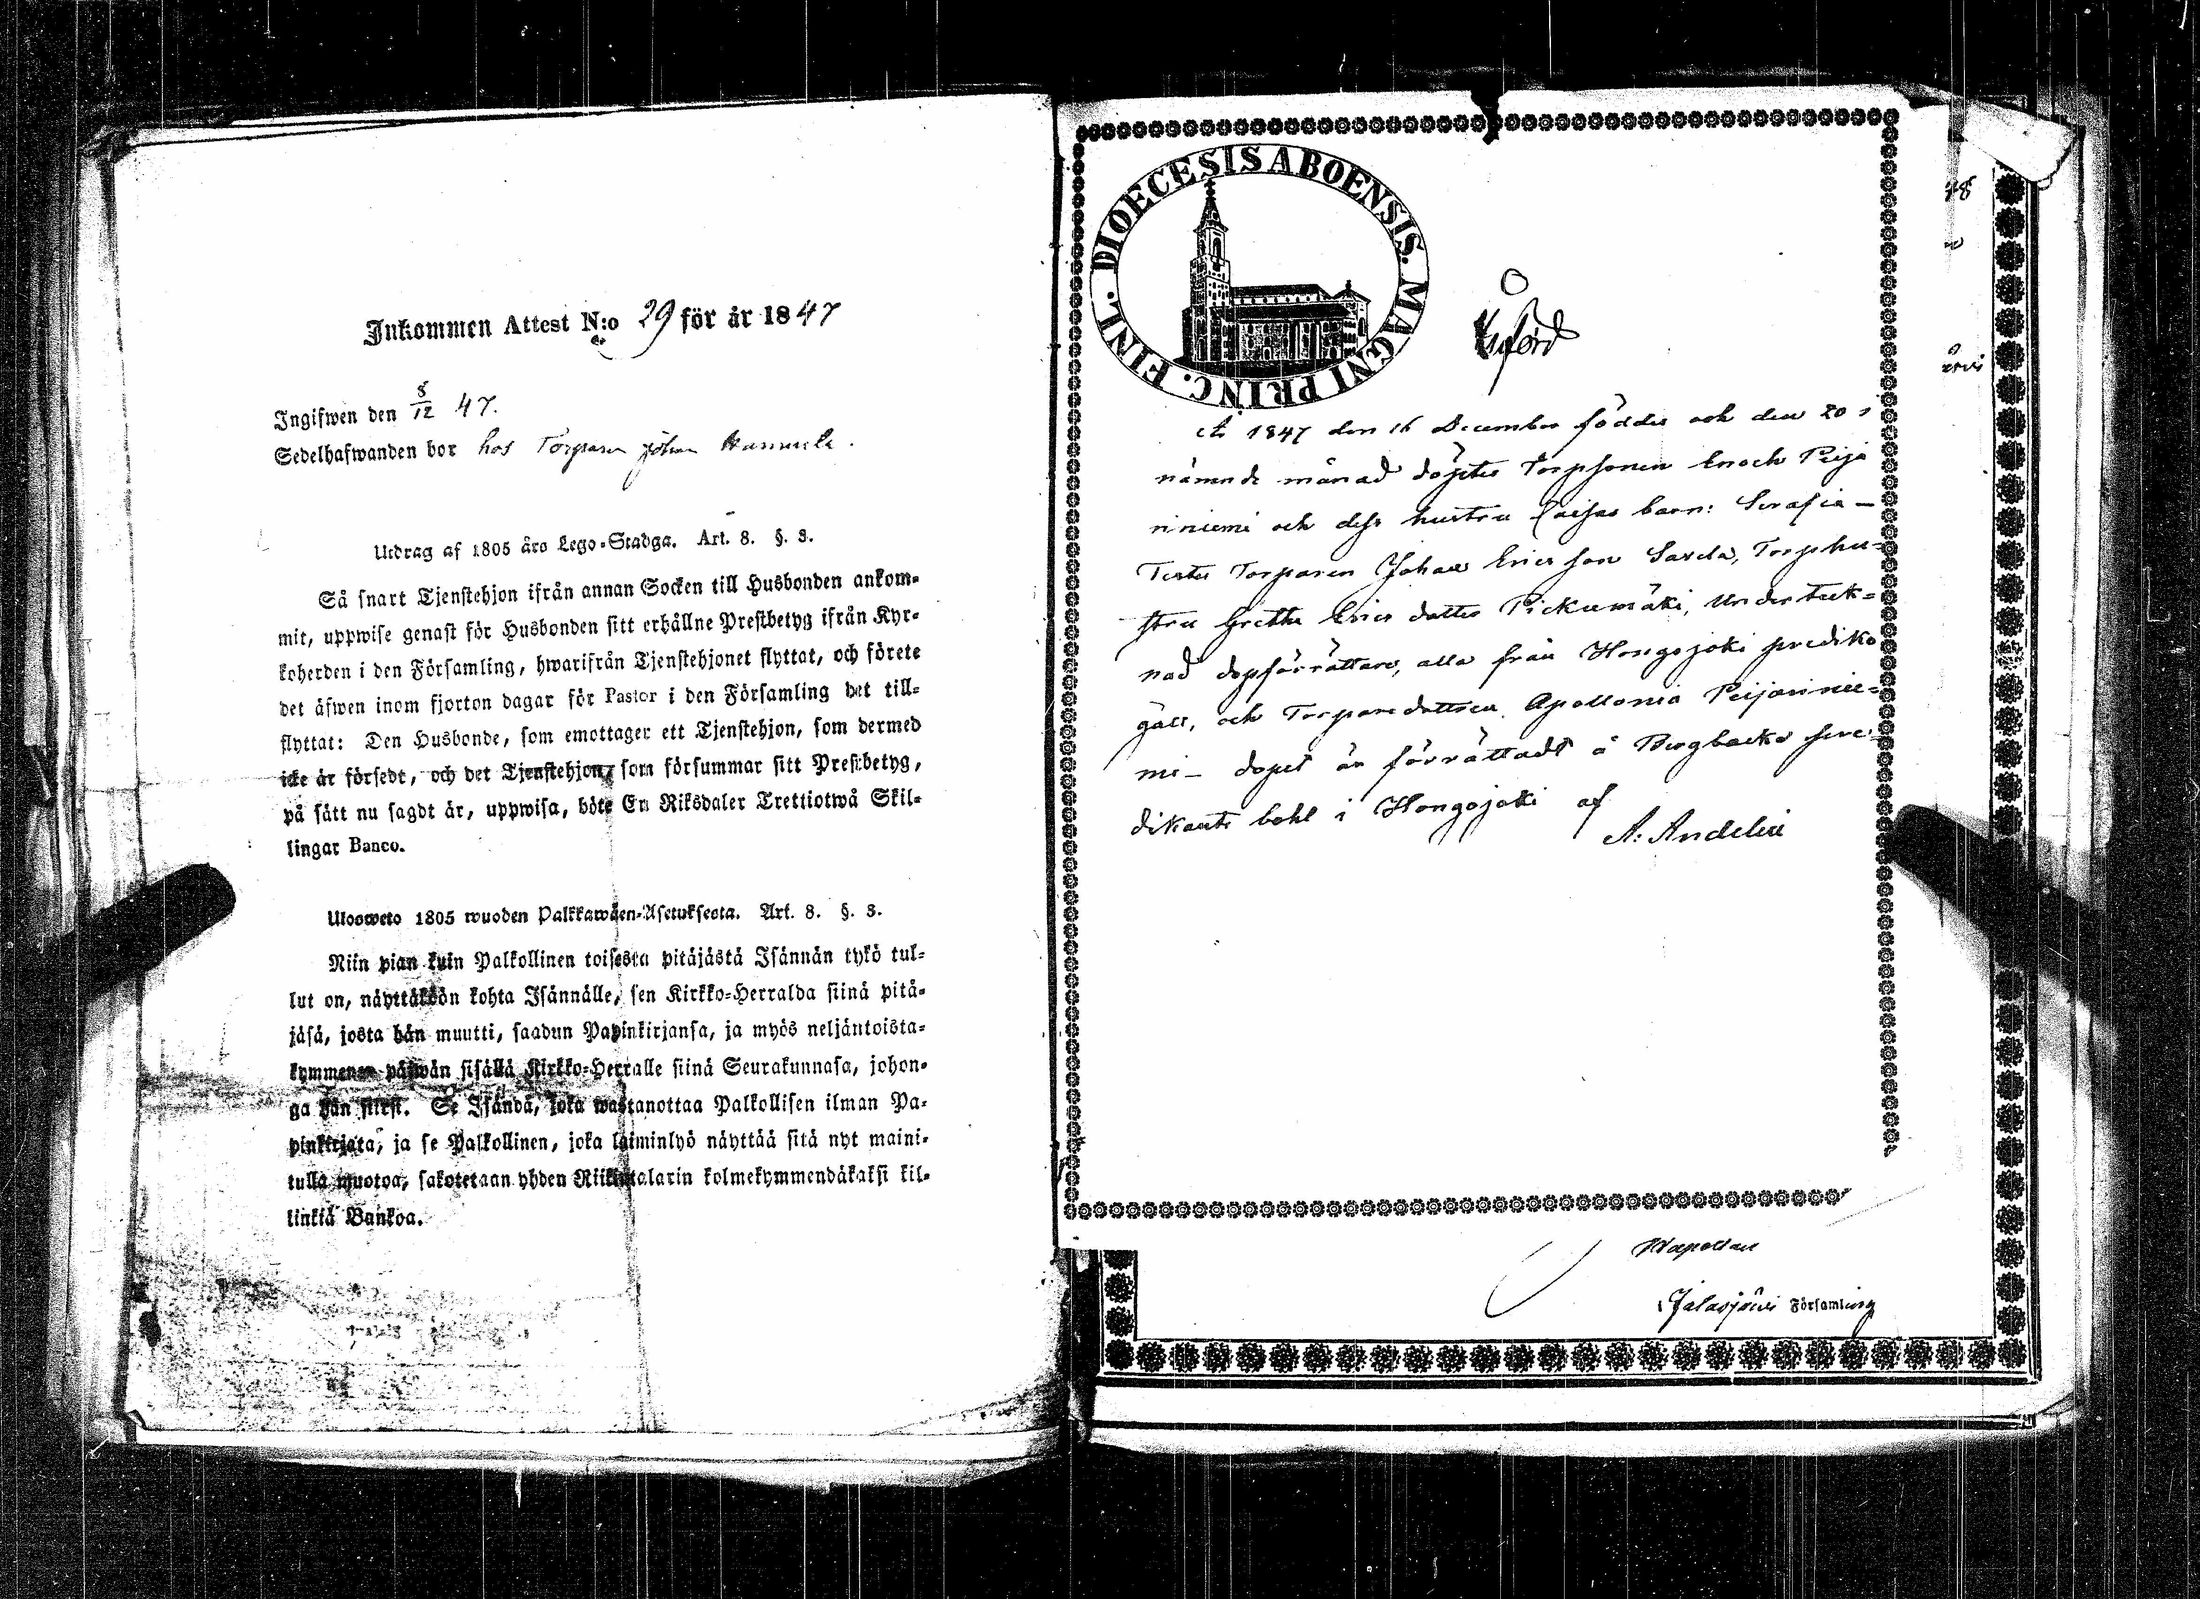 Inkommen Attest N:o 29 för år 1847
Ingifwen den 8/12 47.
Sedelhafwanden bor hos Torparen Johan
Utdrag af 1805 års Lego-Stadga. Art. 8. §. 3.
Så snart Tjenstehjon ifrån annan Socken till Husbonden ankom-
mit, uppwise genast för Husbonden sitt erhållne Prestbetyg ifrån Kyr-
koherden i den Församling, hwarifrån Tjenstehjonet flyttat, och förete
det äfwen inom fjorton dagar för Pastor i den Församling det till-
flyttat: Den Husbonde, som emottager ett Tjenstehjon, som dermed
icke är försedt, och det Tjenstehjon, som försummar sitt Prestbetyg,
på sätt nu sagdt är, uppwisa, böte En Riksdaler Trettiotwå Skil-
lingar Banco.
Ulosweto 1805 wuoden Palkkawäen-Asetuksesta. Art. 8. §. 3.
Niin pian kuin Palkollinen toisesta pitäjästä Isännän tykö tul-
lut on, näyttäköön kohta Isännälle, sen Kirkko-Herralda siinä pitä-
jäsä, josta hän muutti, saadun Papinkirjansa, ja myös neljäntoista-
kymmenen päiwän sisällä Kirkko-Herralle siinä Seurakunnasa, johon-
ga hän siirsi. Se Isändä, joka wastanottaa Palkollisen ilman Pa-
pinkirjata, ja se Palkollinen, joka laiminlyö näyttää sitä nyt maini-
tulla muotoa, sakotetaan yhden Riikintalarin kolmekymmendäkaksi kil-
linkiä Bankoa.
DIOECESIS ABOENSIS. MAGNI PRINC. FINL.
År 1847 den 16 December föddes och den 20 i
nämnde månad döptes Torpsonen Enoch Peija
riniemi och dess hustru Caisas barn: Serafia –
Testes Torparen Johan Ericsson Savela, Torphu-
stru Gretha Ericsdotter Pickumäki, Undertek-
nad dopförrättare, alla från Hongojoki prediko
gäll, och Torparedottren Apollonia Peijarinie-
mi – dopet är förrättadt å Bergbacka pre-
dikants bohl i Hongojoki af
A: Andelin
48
Kapellan
i Jalasjärvi Församling